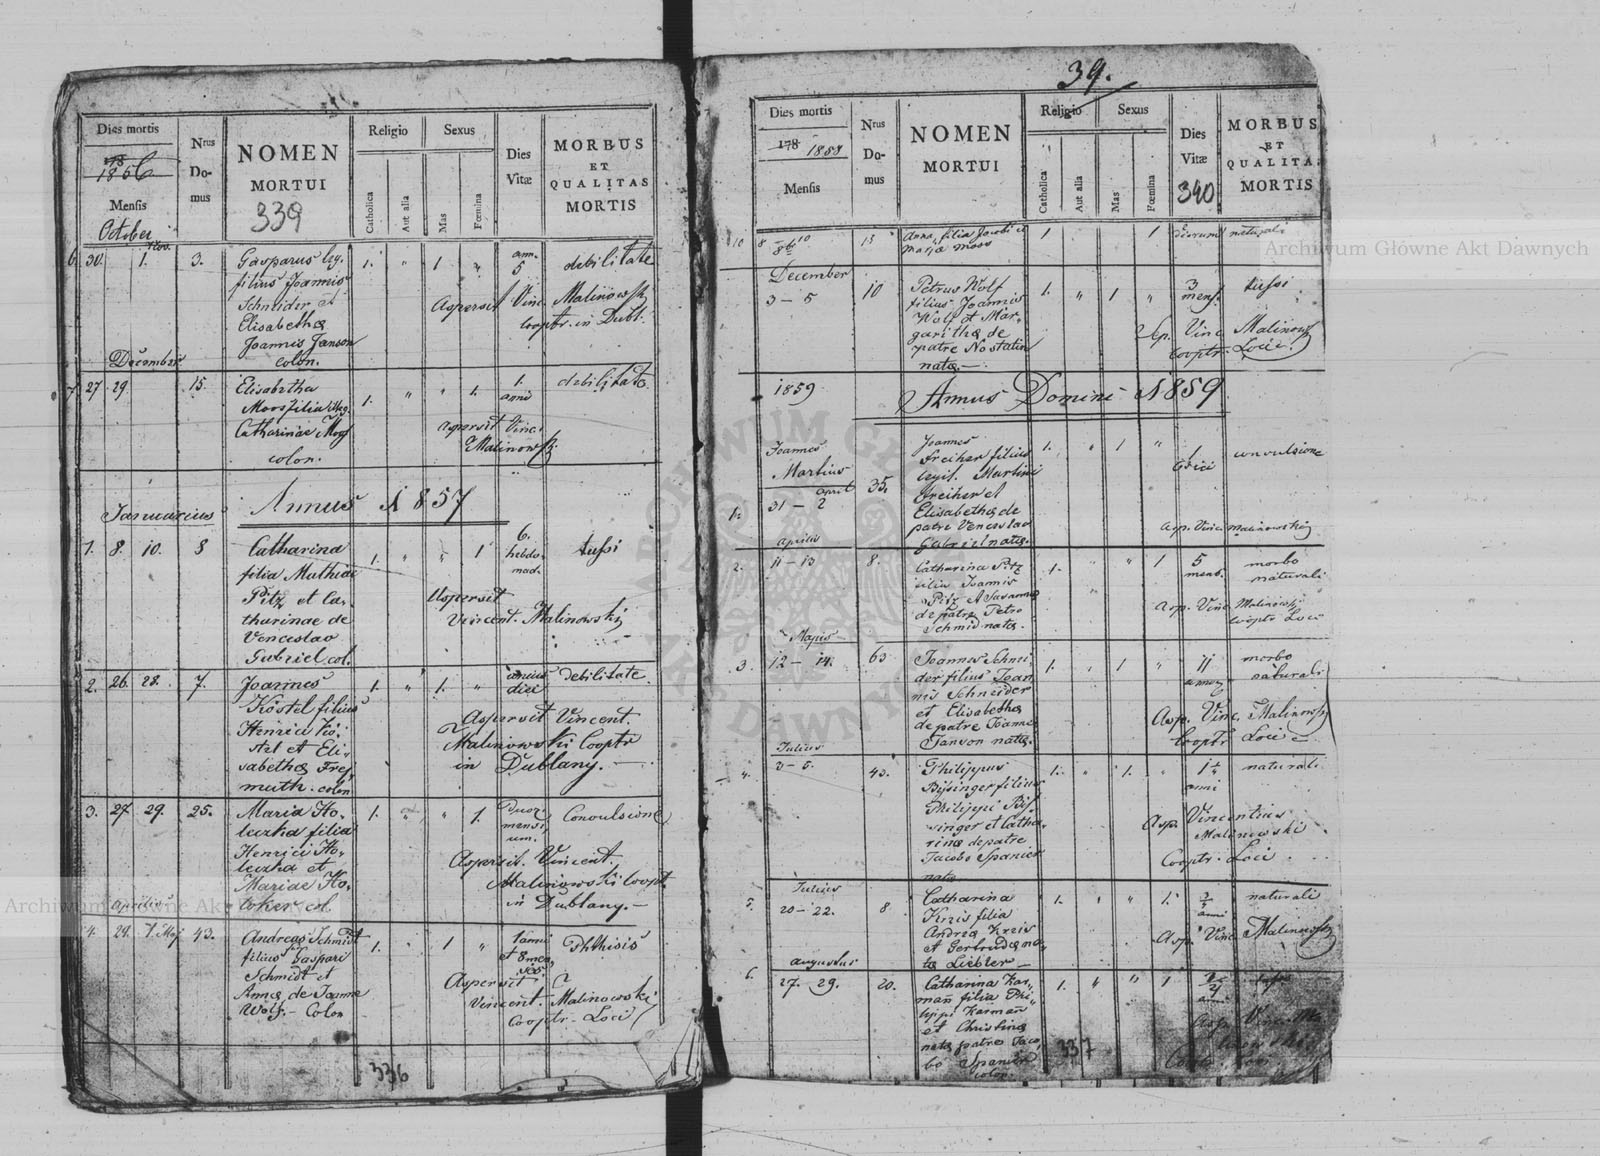 Dies mortis
1856
Mensis
October
Nrus
Do-
mus
NOMEN
MORTUI
339
Religio
Sexus
Catholica
Aut alia
Mas
Fœmina
Dies
Vitæ
MORBUS
ET
QUALITAS
MORTIS
6. 30. Nov. 1. 3. Gasparus leg. 1. " 1 " ann. 5 debilitate
filius Joannis
Schneider et Aspersit Vinc. Malinowski
Elisabetha cooptr. in Dubl.
Joannis Janson
colon.
December
7. 27 29 15. Elisabetha 1. " " 1. 1. anni debilitate
Moos filia illeg.
Catharinae Moos aspersit Vinc.
colon. Malinowski
Annus 1857
Januarius
1. 8. 10. 8 Catharina 1. " " 1 6. hebdo- mad. tussi
filia Mathiae
Pitz et Ca- Aspersit
tharinae de Vincent. Malinowski
Venceslao
Gabriel col.
2. 26. 28. 7. Joannes 1. " 1. " unius diei debilitate
Köstel filius
Henrici Kö- Aspersit Vincent.
stel et Eli- Malinowski Cooptr
sabetha Frey in Dublany.
muth. colon
3. 27 29. 25. Maria Ho- 1. " " 1. Duor. mensi um. Convulsione
leczka filia
Henrici Ho- Aspersit. Vincent.
leczka et Malinowski Coopt.
Mariae Ho- in Dublany.
loker col
Aprilis
4. 29. 1. Maj 43. Andreas Schmidt 1. " 1 " 1 anni et 8 men. Phthisis
filius Gaspari
Schmidt et Aspersit
Anna de Joanne Vincent. Malinowski
Wolf. Colon Cooptr. Loci
336
39.
Dies mortis
178 1858
Mensis
Nrus
Do-
mus
NOMEN
MORTUI
Religio
Sexus
Catholica
Aut alia
Mas
Fœmina
Dies
Vitæ
340
MORBUS
ET
QUALITAS
MORTIS
10 8 10 15 Anna filia Jacobi et 1 1 dierum naturali
Maria Moos
December
3 - 5 10 Petrus Wolf 1. " 1 " 3 mens. tussi
filius Joannis
Wolf et Mar- Asp. Vinc. Malinowski
garitha de Cooptr. Loci.
patre
nata.
1859 Annus Domini 1859
Joannes
Martius
1. 31 - april 2 35. Joannes 1. " 1 " convulsione
Freiher filius
legit. Martini
Freiher et
Elisabetha de
patre Venceslao Asp. Vinc. Malinowski
Gabriel nata.
Aprilis
2. 11 - 13 8. Catharina Pitz 1. " " 1 5 mens. morbo naturali
filia Joannis
Pitz et Susanna Asp. Vinc. Malinowski
de patre Petro Cooptr Loci
Schmid nata.
Majus
3. 12 - 14. 63 Joannes Schnei- 1. " 1 " 11 morbo naturali
der filius Joan-
nis Schneider
et Elisabetha Asp. Vinc. Malinowski
de patre Joanne Cooptr. Loci
Janson nata.
Julius
4. 3 - 5. 43. Philippus 1. " 1. " anni naturali
Bisinger filius
Philippi Bis- Asp. Vincentius
singer et Catha- Malinowski
rina de patre Cooptr. Loci
Jacobo Spanier
nata
Julius
5. 20 - 22. 8 Catharina 1. " " 1. anni naturali
Kreis filia
Andrea Kreis Asp. Vinc. Malinowski
et Gertruda na-
ta Liebler
Augustus
6. 27. 29. 20. Catharina Kar- 1. " " 1
man filia Phi-
lippi Karman
et Christina
nata patre Jaco-
bo Spanier
colon.
337
Archiwum Główne Akt Dawnych
Archiwum Główne Akt Dawnych
ARCHIWUM GŁÓWNE AKT DAWNYCH